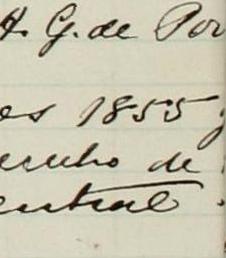 H. G. de Por
es 1855 y
erecho de
entral.